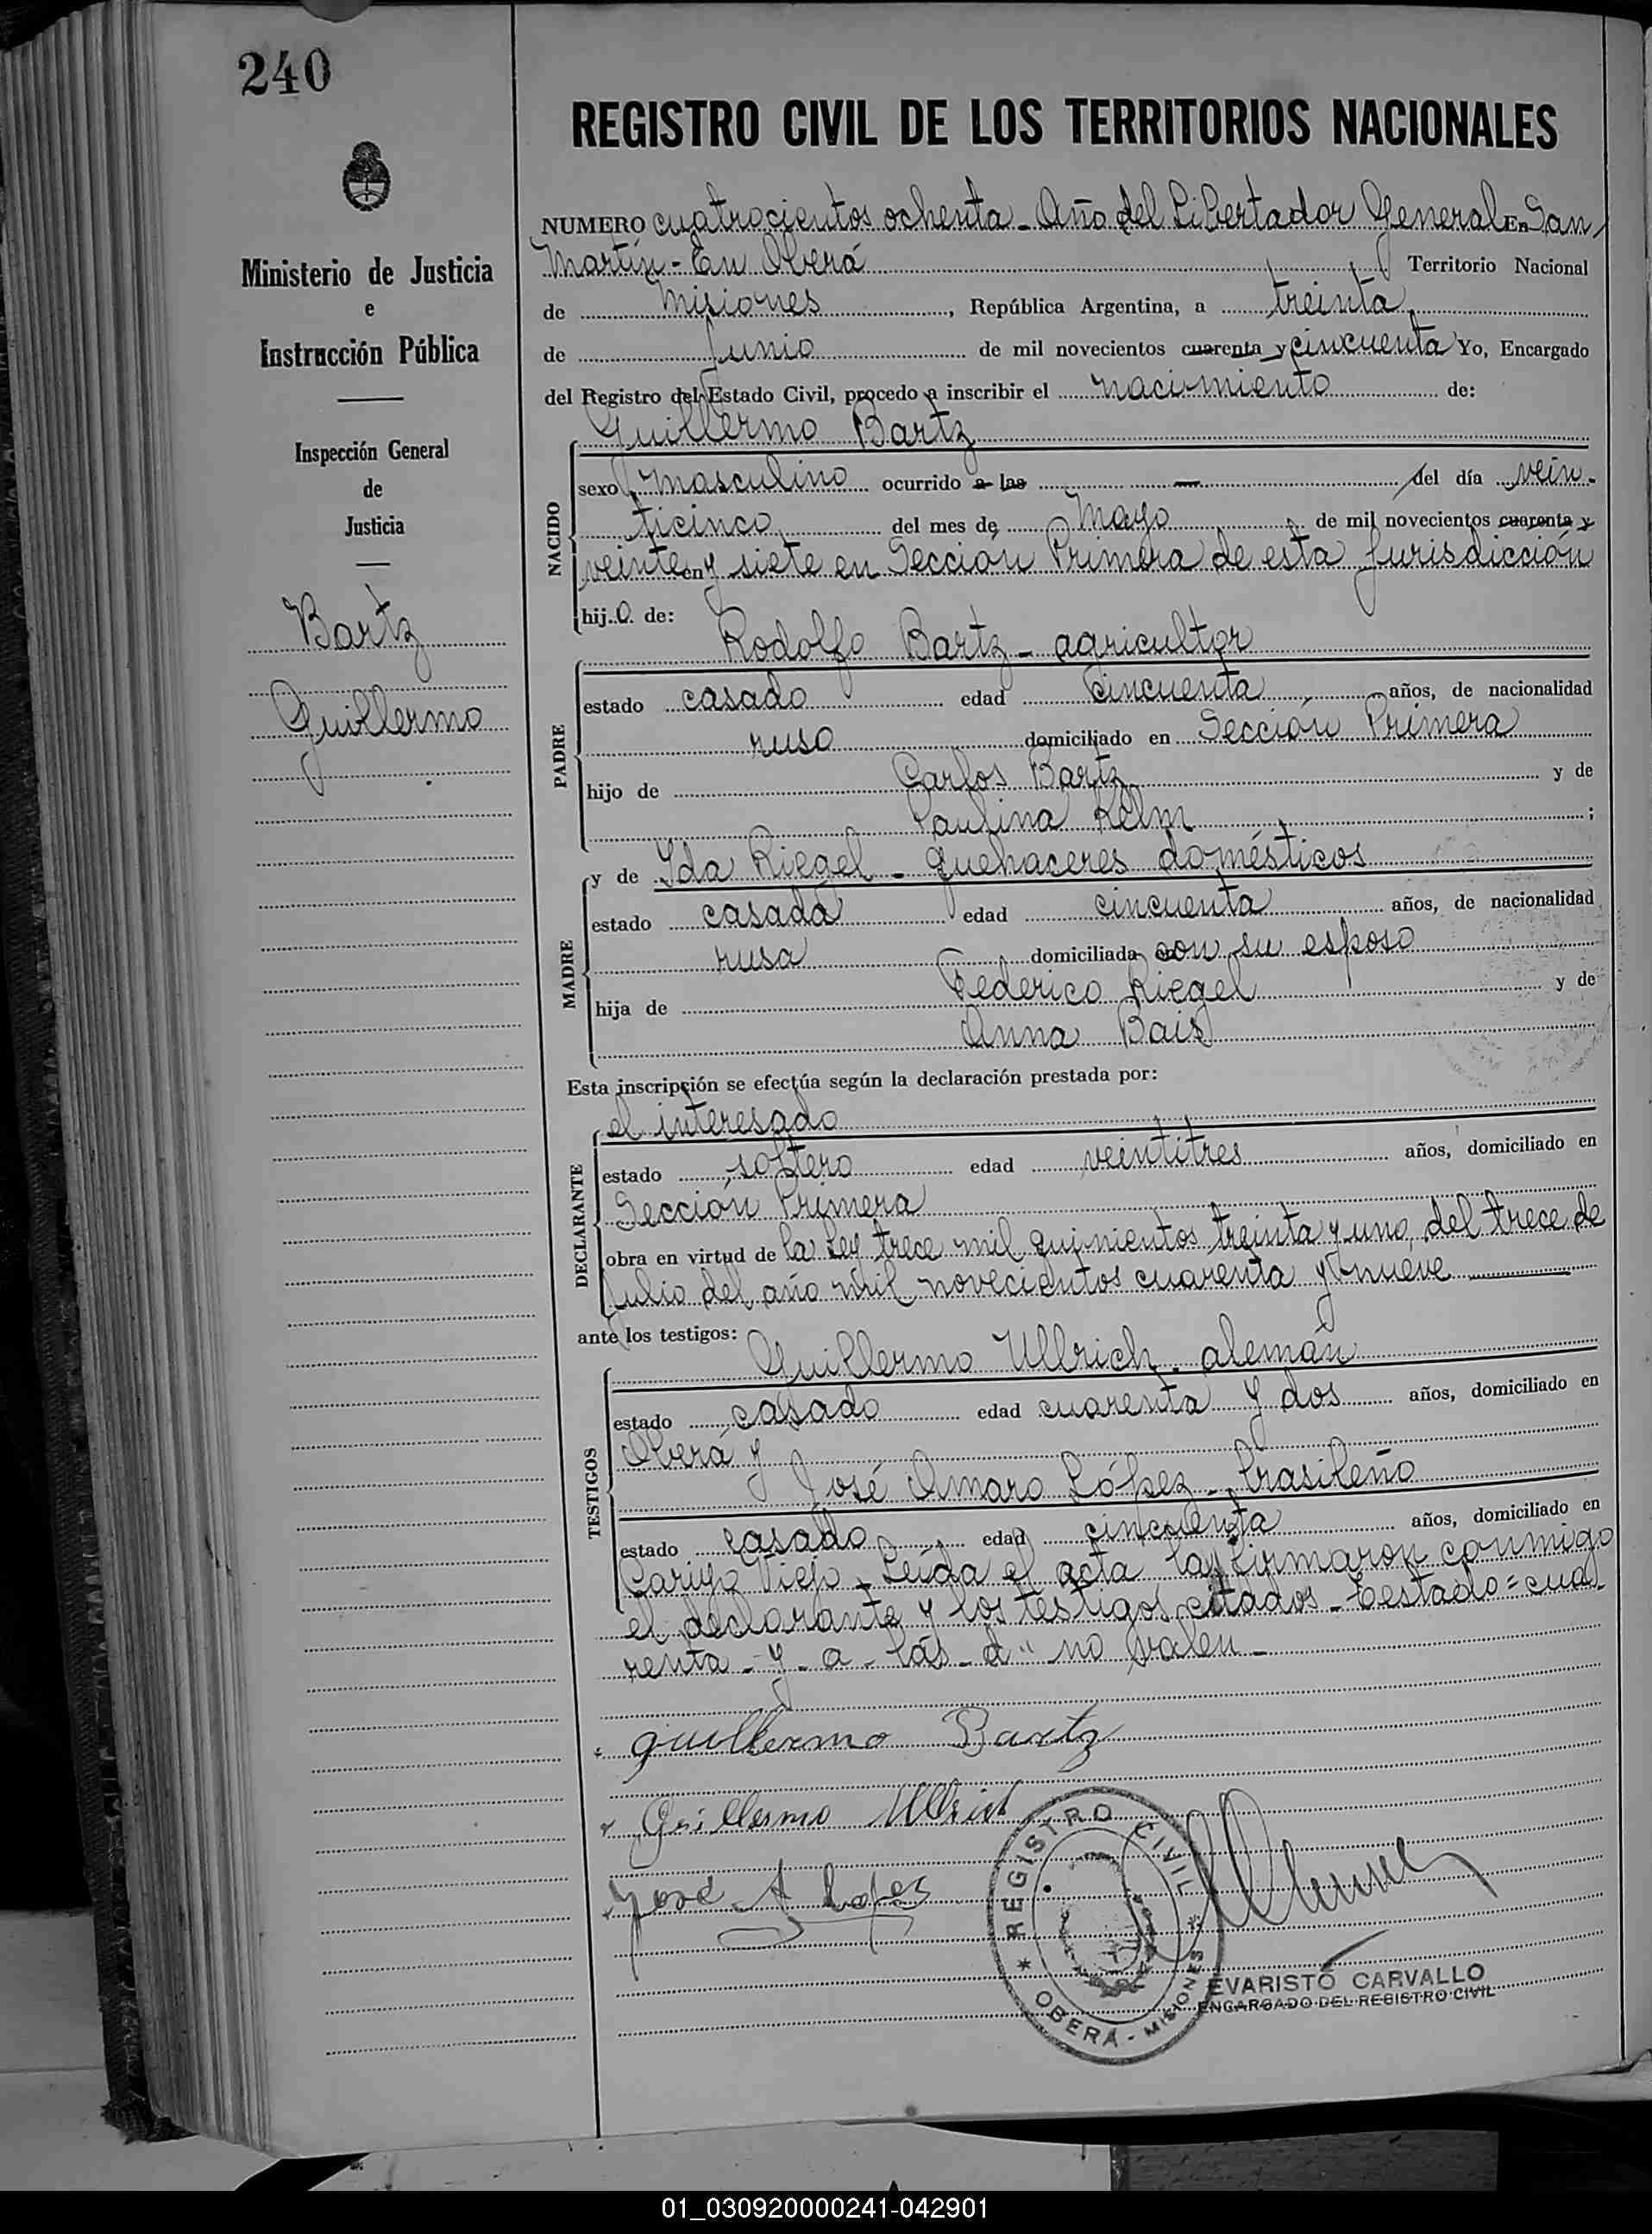 240
Ministerio de Justicia
e
Instrucción Pública
Inspección General
de
Justicia
Bartz
Guillermo
REGISTRO CIVIL DE LOS TERRITORIOS NACIONALES
NUMERO cuatrocientos ochenta - Año del Libertador General En San
Martín - En Oberá Territorio Nacional
de Misiones, República Argentina, a treinta
de Junio de mil novecientos cuarenta y cincuenta Yo, Encargado
del Registro del Estado Civil, procedo a inscribir el nacimiento de:
Guillermo Bartz
NACIDO
sexo masculino ocurrido a las — del día vein-
ticinco del mes de Mayo de mil novecientos cuarenta y
veinte en y siete en Sección Primera de esta jurisdicción
hijo de:
Rodolfo Bartz - agricultor
PADRE
estado casado edad cincuenta años, de nacionalidad
ruso domiciliado en Sección Primera
hijo de Carlos Bartz y de
Paulina Kelm ;
y de Ida Riegel - quehaceres domésticos
MADRE
estado casada edad cincuenta años, de nacionalidad
rusa domiciliada con su esposo
hija de Federico Riegel y de
Anna Bais
Esta inscripción se efectúa según la declaración prestada por:
el interesado
DECLARANTE
estado soltero edad veintitres años, domiciliado en
Sección Primera
obra en virtud de la Ley trece mil quinientos treinta y uno, del trece de
Julio del año mil novecientos cuarenta y nueve
ante los testigos:
Guillermo Ullrich - alemán
TESTIGOS
estado casado edad cuarenta y dos años, domiciliado en
Oberá y
José Amaro López - brasileño
estado casado edad cincuenta años, domiciliado en
Viejo - Leída el acta la firmaron conmigo
el declarante y los testigos citados - Testado = cua
renta - y - a - las - d" no valen -
guillermo Bartz
Guillermo Ullrich
José A Lopes
REGISTRO CIVIL
OBERÁ - MISIONES
EVARISTO CARVALLO
ENCARGADO DEL REGISTRO CIVIL
01_030920000241-042901